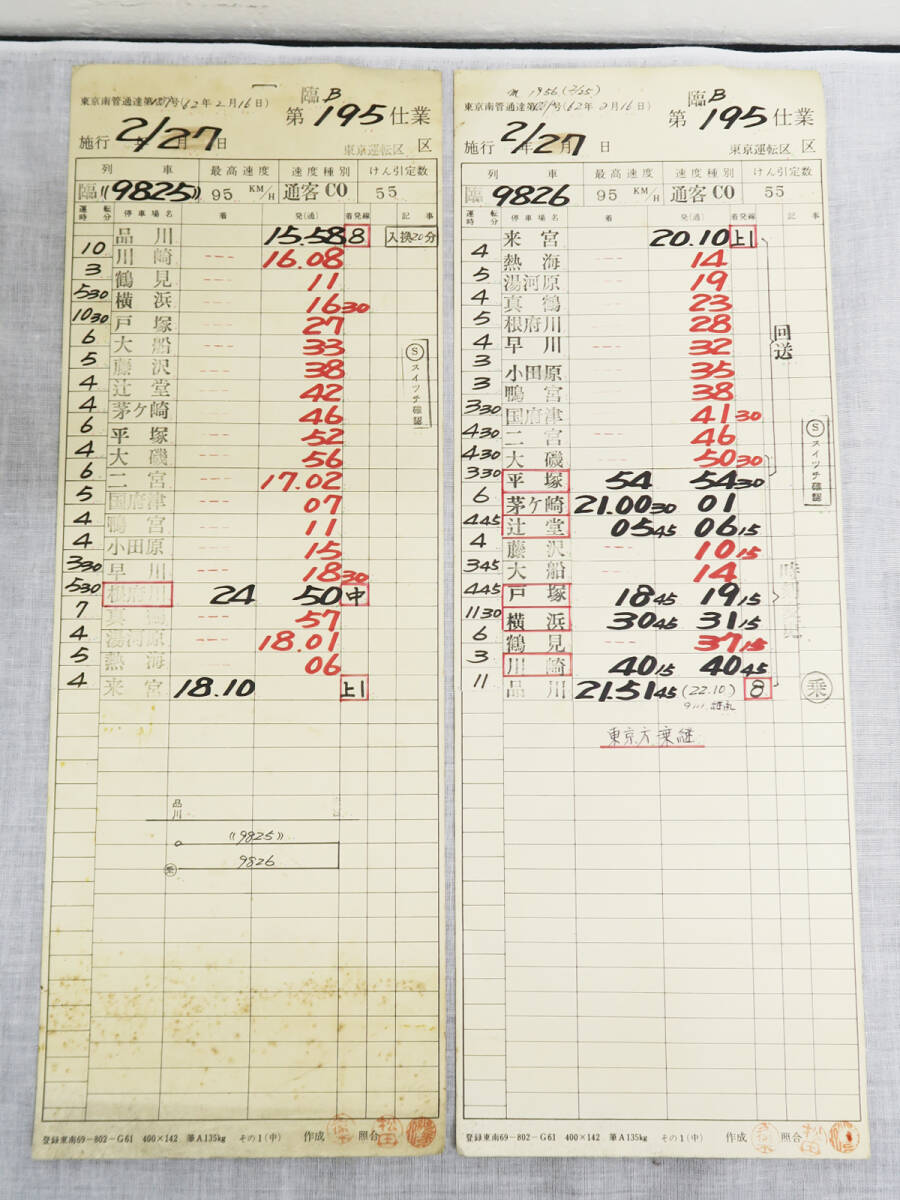 東京南管通達第 号(62年2月16日)
臨B
第195仕業
施行 2/27 年 月 日
東京運転区 区
列 車 最高速度 速度種別 けん引定数
臨《9825》 95 KM/H 通客C0 55
運転時分 停車場名 着 発(通) 着発線 記事
品川 15.58 8 入換20分
10
川崎 --- 16.08
3
鶴見 --- 11
530
横浜 --- 1630
1030
戸塚 --- 27
6
大船 --- 33
5
藤沢 --- 38
4
辻堂 --- 42
4
茅ケ崎 --- 46
6
平塚 --- 52
4
大磯 --- 56
6
二宮 --- 17.02
5
国府津 --- 07
4
鴨宮 --- 11
4
小田原 --- 15
330
早川 --- 1830
530
根府川 24 50 中
7
真鶴 --- 57
4
湯河原 --- 18.01
5
熱海 --- 06
4
来宮 18.10 上1
Ⓢスイツチ確認
品川
《9825》
9826
乗
登録東南69-802-G61 400×142 筆A135kg その1(中) 作成 照合 松田
1956(2/25)
東京南管通達第 号(62年2月16日)
臨B
第195仕業
施行 2/27 年 月 日
東京運転区 区
列 車 最高速度 速度種別 けん引定数
9826 95 KM/H 通客C0 55
運転時分 停車場名 着 発(通) 着発線 記事
来宮 20.10 上1
4
熱海 --- 14
5
湯河原 --- 19
4
真鶴 --- 23
5
根府川 --- 28
4
早川 --- 32
3
小田原 --- 35
3
鴨宮 --- 38
330
国府津 --- 4130
430
二宮 --- 46
430
大磯 --- 5030
330
平塚 54 5430
6
茅ケ崎 21.0030 01
445
辻堂 0545 0615
4
藤沢 --- 1015
345
大船 --- 14
445
戸塚 1845 1915
1130
横浜 3045 3115
6
鶴見 --- 3715
3
川崎 4015 4045
11
品川 21.5145 (22.10) 8 乗
回送
Ⓢスイツチ確認
東京方乗継
登録東南69-802-G61 400×142 筆A135kg その1(中) 作成 照合 松田